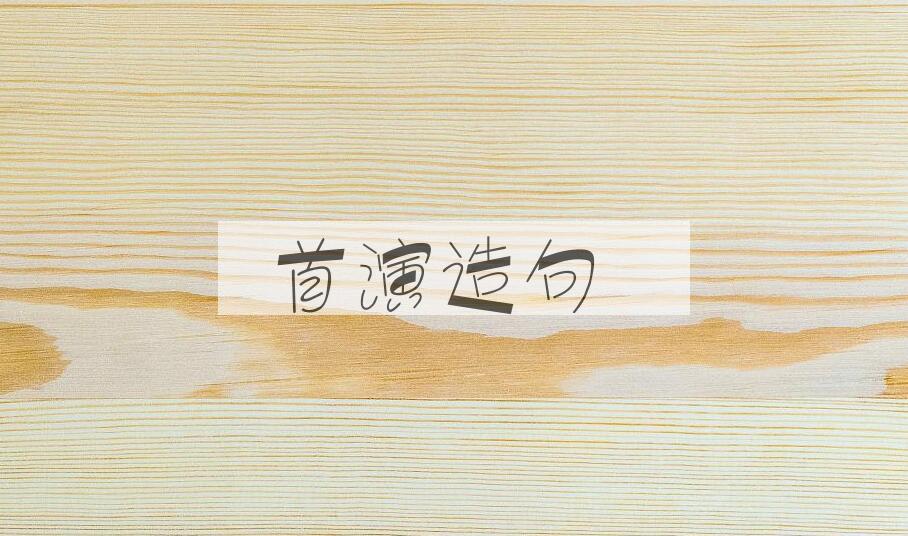 首演造句